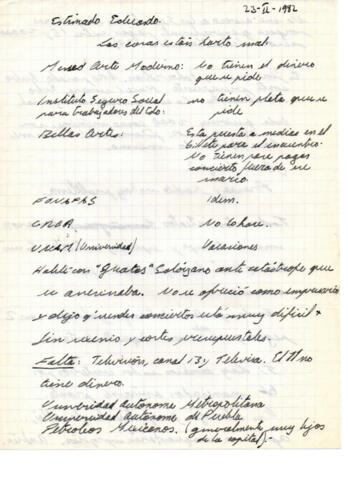 23-II-1982
Estimado Eduardo.
Las cosas están harto mal.
Museo Arte Moderno: no tienen el dinero
que se pide
Instituto Seguro Social no tienen plata que se
para trabajadores del Edo. pide
Bellas Artes: Esta puesta a medias en el
para el encuentro.
No tienen para pagar
concierto fuera de ese
marco.
FONAPAS Idem.
CREA. No Cohore.
UNAM (Universidad) Vacaciones
Hablé con "Guatas" Solórzano ante catástrofe que
se avecinaba. No se ofreció como empresario
y dijo q' vender conciertos era muy difícil x
fin sexenio y cortes presupuestales.
Falta: Televisión, canal 13 y Televisa. El 11 no
tiene dinero.
Universidad Autónoma Metropolitana
Universidad Autónoma de Puebla
Petroleos Mexicanos. (generalmente muy lejos
de la capital).-